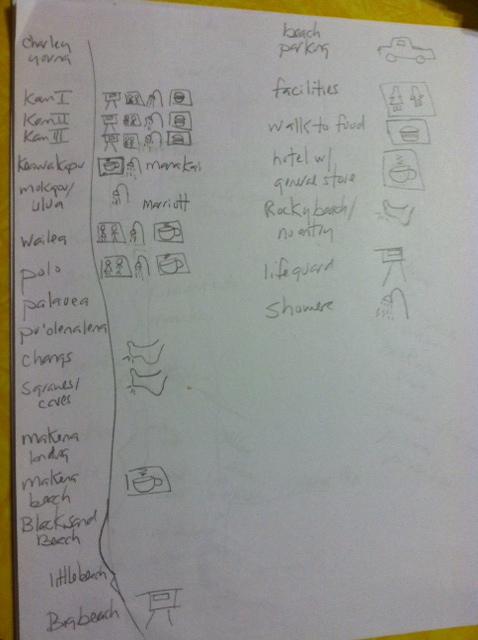 charley
young
Kam I
Kam II
Kam III
Keawakapu
manakai
mokapu/
ulua
marriott
wailea
polo
palauea
po'olenalena
changs
5 graves/
caves
makena
landing
makena
beach
Black sand
Beach
little beach
Big beach
beach
parking
facilities
walk to food
hotel w/
general store
Rocky beach/
no entry
lifeguard
showers